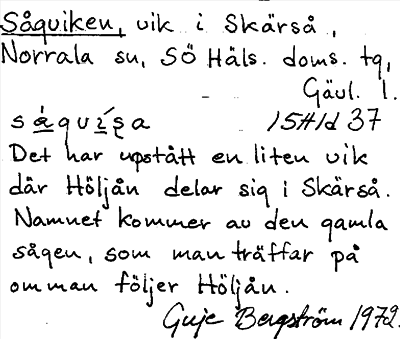 Såqviken, vik i Skärså,
Norrala sn, SÖ Häls. doms. tg,
Gävl. l.
15H1d 37
Det har uppstått en liten vik
där Höljån delar sig i Skärså.
Namnet kommer av den gamla
sågen, som man träffar på
om man följer Höljån.
Guje Bergström 1972.